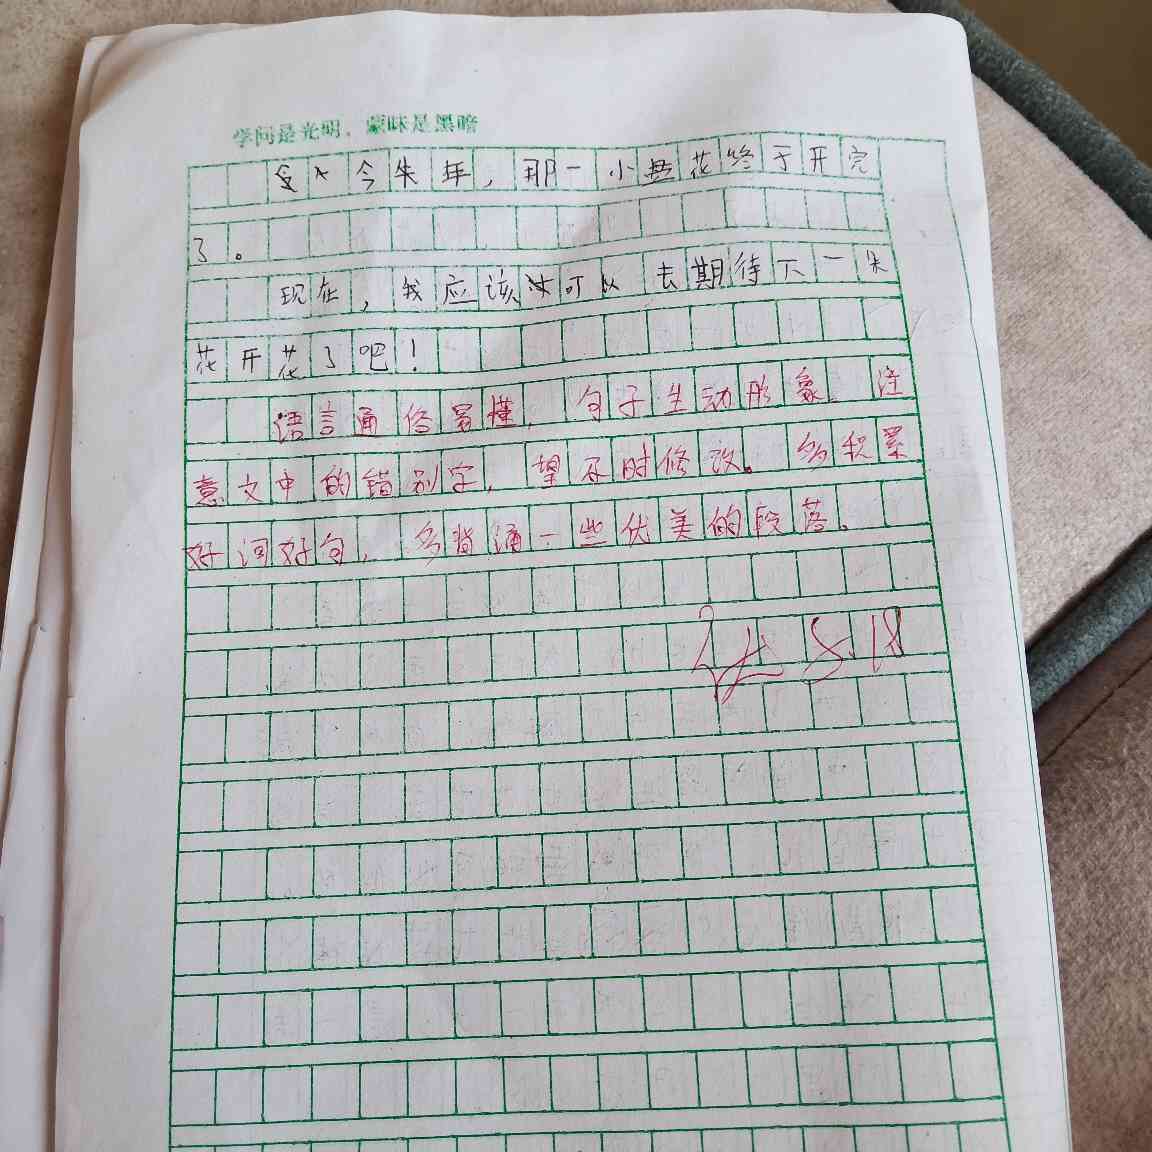 学问是光明，蒙昧是黑暗
今年，那一小些花终于开完
了。
现在，我应该可以去期待下一朱
花开花了吧！
语言通俗易懂，句子生动形象。注
意文中的错别字，望及时修改。多积累
好词好句，多背诵一些优美的段落。
5.18